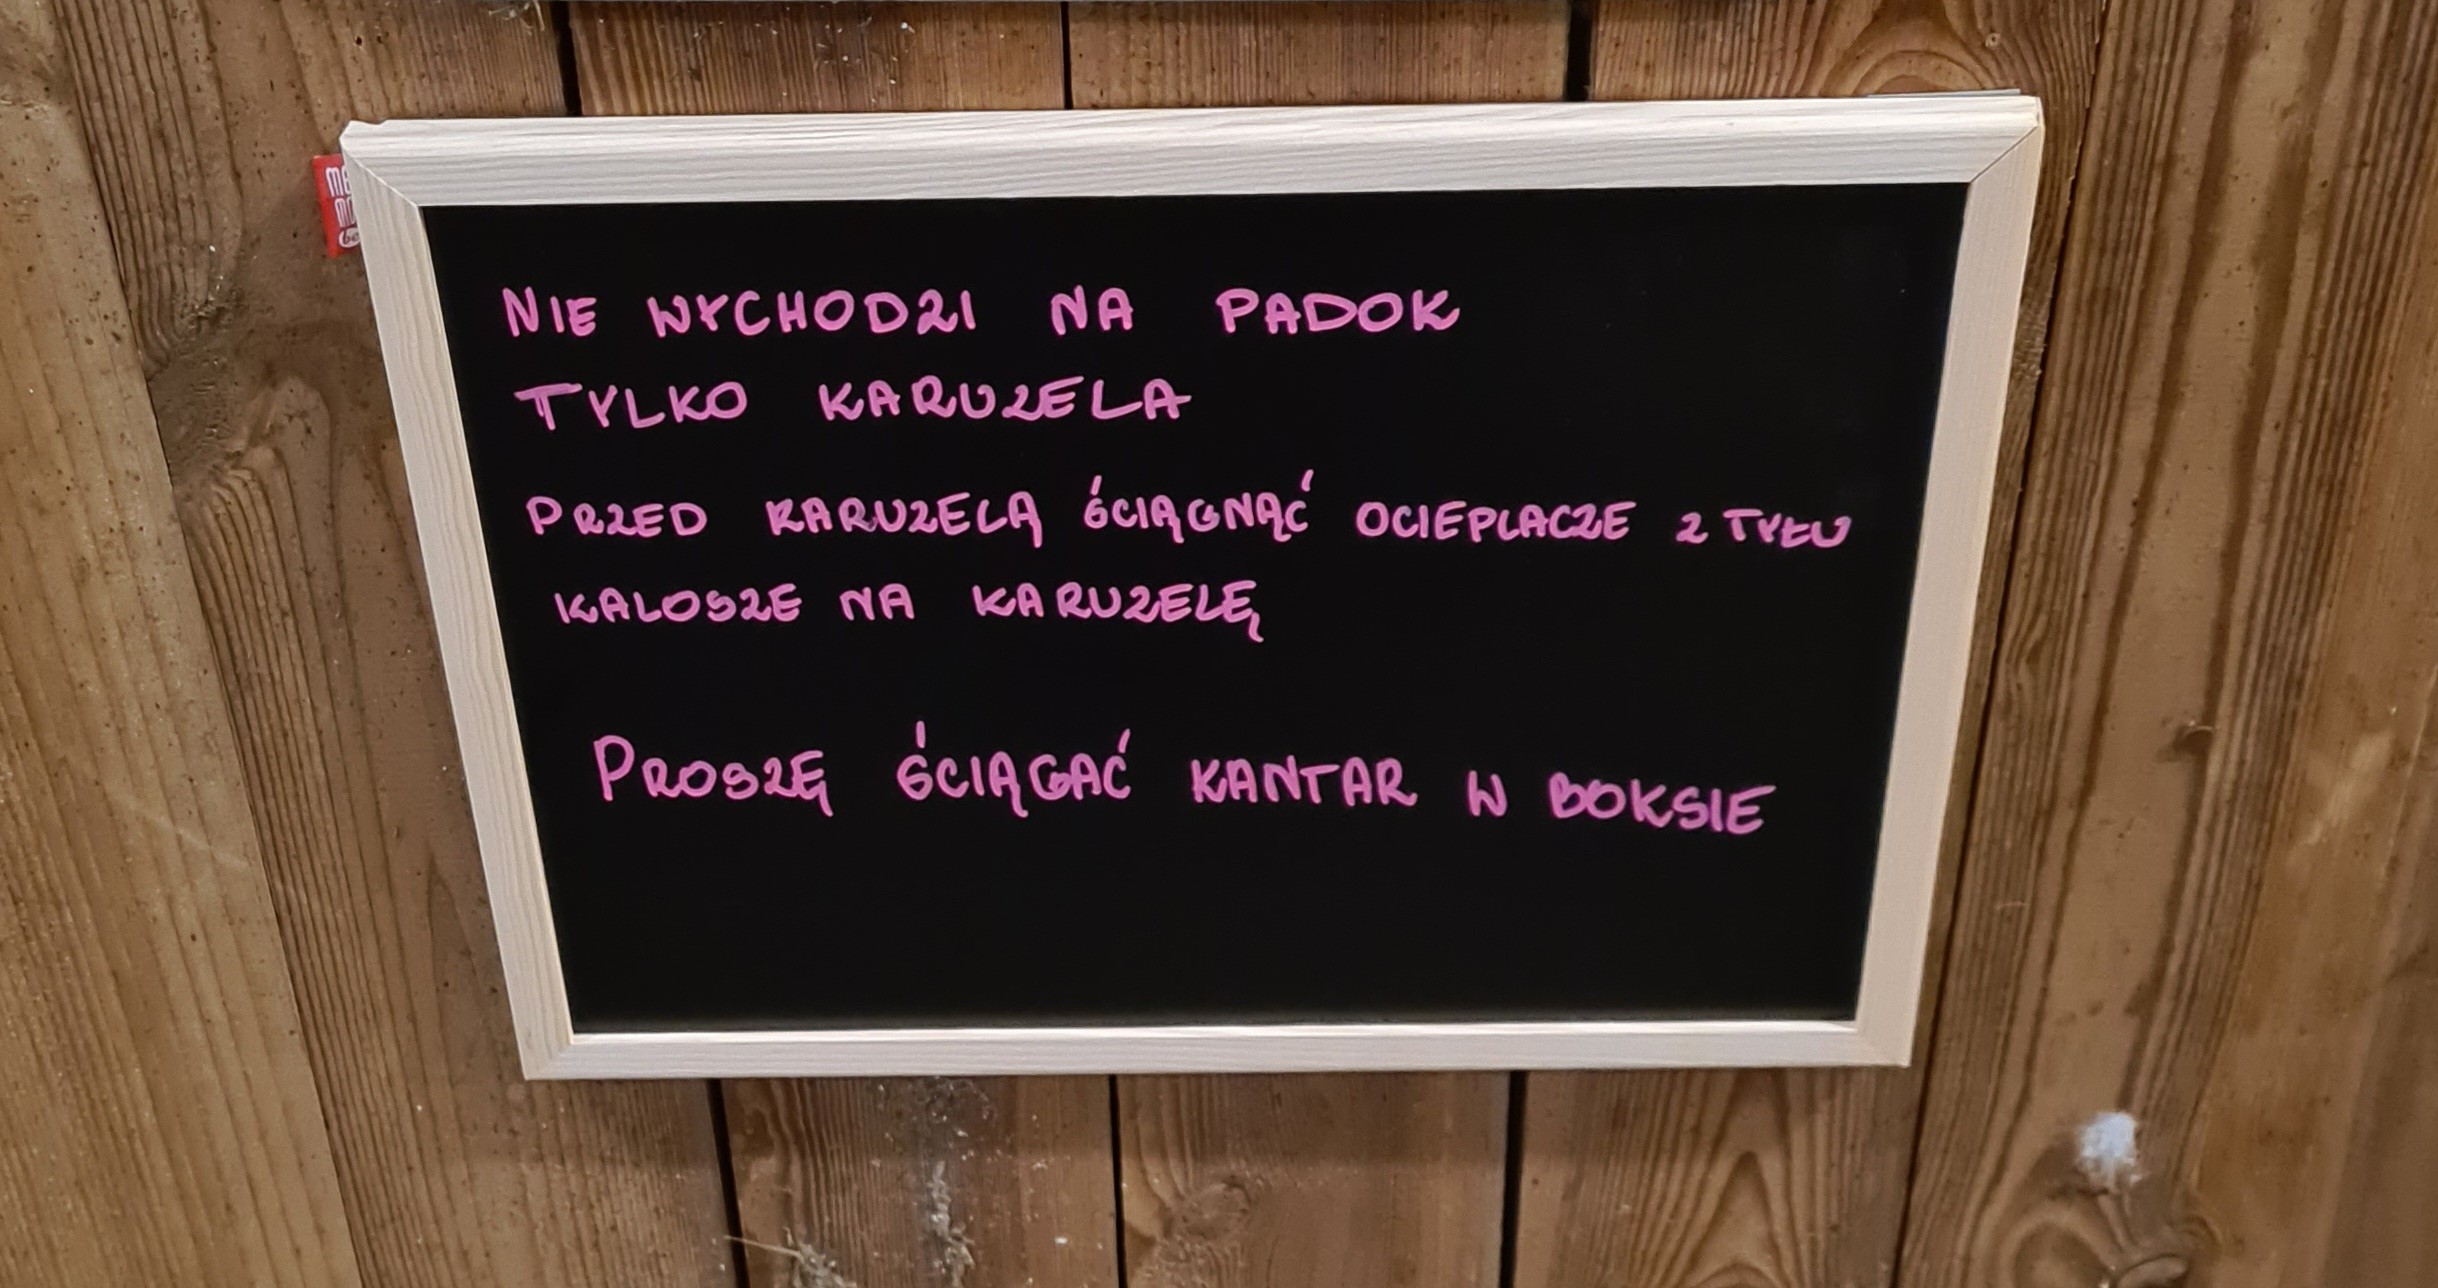 NIE WYCHODZI NA PADOK
TYLKO KARUZELA
PRZED KARUZELĄ ŚCIĄGNĄĆ OCIEPLACZE Z TYŁU
KALOSZE NA KARUZELĘ
PROSZĘ ŚCIĄGAĆ KANTAR W BOKSIE